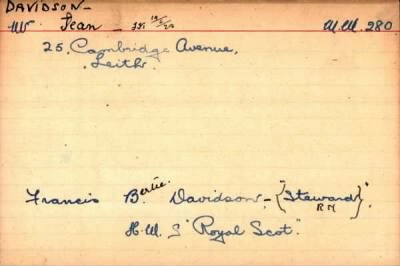 DAVIDSON—
Mr Jean — M.M. 280
25, Cambridge Avenue,
Leith.
Francis Bertie Davidson,- {"Steward RN}",
H.M. S "Royal Scot."